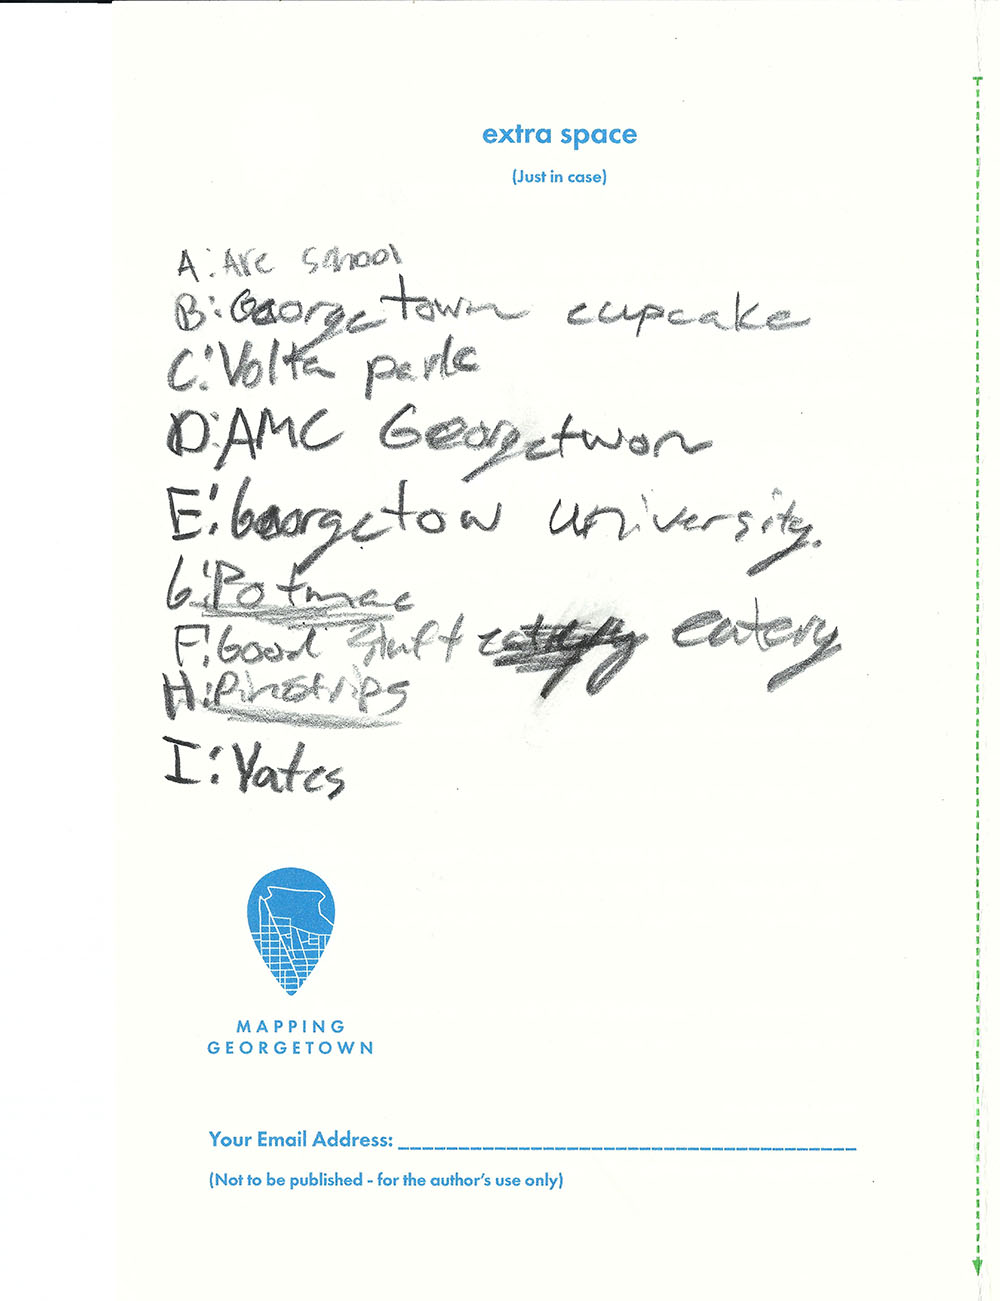 extra space
(Just in case)
A: Arc school
B: Georgetown cupcake
C: Volta park
D: AMC Georgetwon
E: Georgetow university.
G: Potmac
F: Good Stuff eatery
H: Pinstrips
I: Yates
MAPPING
GEORGETOWN
Your Email Address:
(Not to be published - for the author's use only)